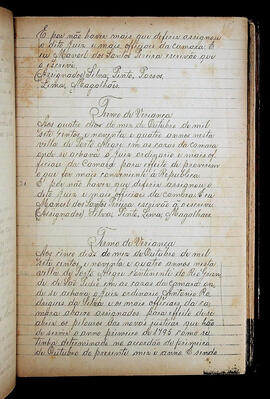 E por não haver mais que deferir assignou
o dito Juiz e mais officiaes da camara. E
eu Manoel dos Santos Pereira escrivão que
o escrevi.
Assignados: Silva, Pinto,
Lima, Magalhais.
Termo de Vriança
Aos quatro dias do mez de Outubro de mil
sete centos e noventa e quatro annos nesta
villa de Porto Alegre em as casas da camara
onde se achava o Juiz ordinario e mais of-
ficiaes da Camara para effeito de proverem
o que for mais conveniente á Republica.
E por não haver que deferir assignou o
dito Juiz e mais officiaes da camara. Eu
Manoel dos Santos Pereira escrivão o escrevi
Assignados: Silva, Pinto, Lima, Magalhais
Termo de Vriança
Aos cinco dias do mez de Outubro de mil
sete centos e noventa e quatro annos nesta
villa de Porto Alegre continente do Rio Gran-
de de São Pedro em as casas da camara on-
de se achava o Juiz ordinario Antonio Ro-
drigues da Silva e os mais officiaes da ca-
mara abaixo assignados para effeito de se
abrir os pilouros das novas justiças que hão
de servir o anno primeiro de 1795 como se
tinha determinado no accordão do primeiro
de Outubro do presente mez e anno E sendo